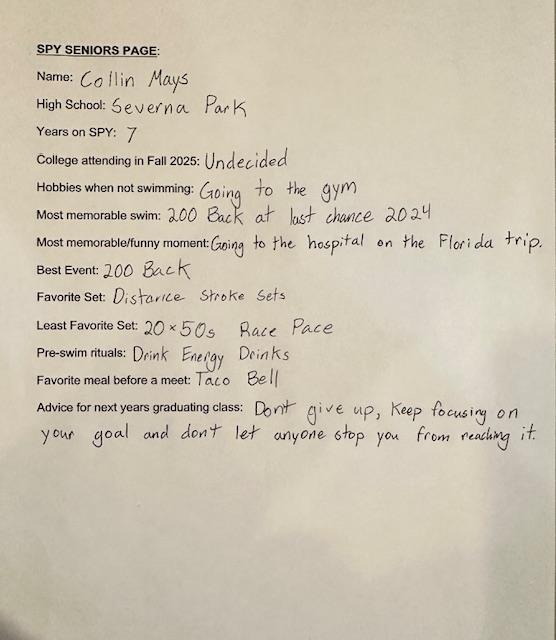 SPY SENIORS PAGE:
Name: Collin Mays
High School: Severna Park
Years on SPY: 7
College attending in Fall 2025: Undecided
Hobbies when not swimming: Going to the gym
Most memorable swim: 200 Back at last chance 2024
Most memorable/funny moment: Going to the hospital on the Florida trip.
Best Event: 200 Back
Favorite Set: Distance Stroke Sets
Least Favorite Set: 20 × 50s Race Pace
Pre-swim rituals: Drink Energy Drinks
Favorite meal before a meet: Taco Bell
Advice for next years graduating class: Dont give up, Keep focusing on
your goal and dont let anyone stop you from reaching it.